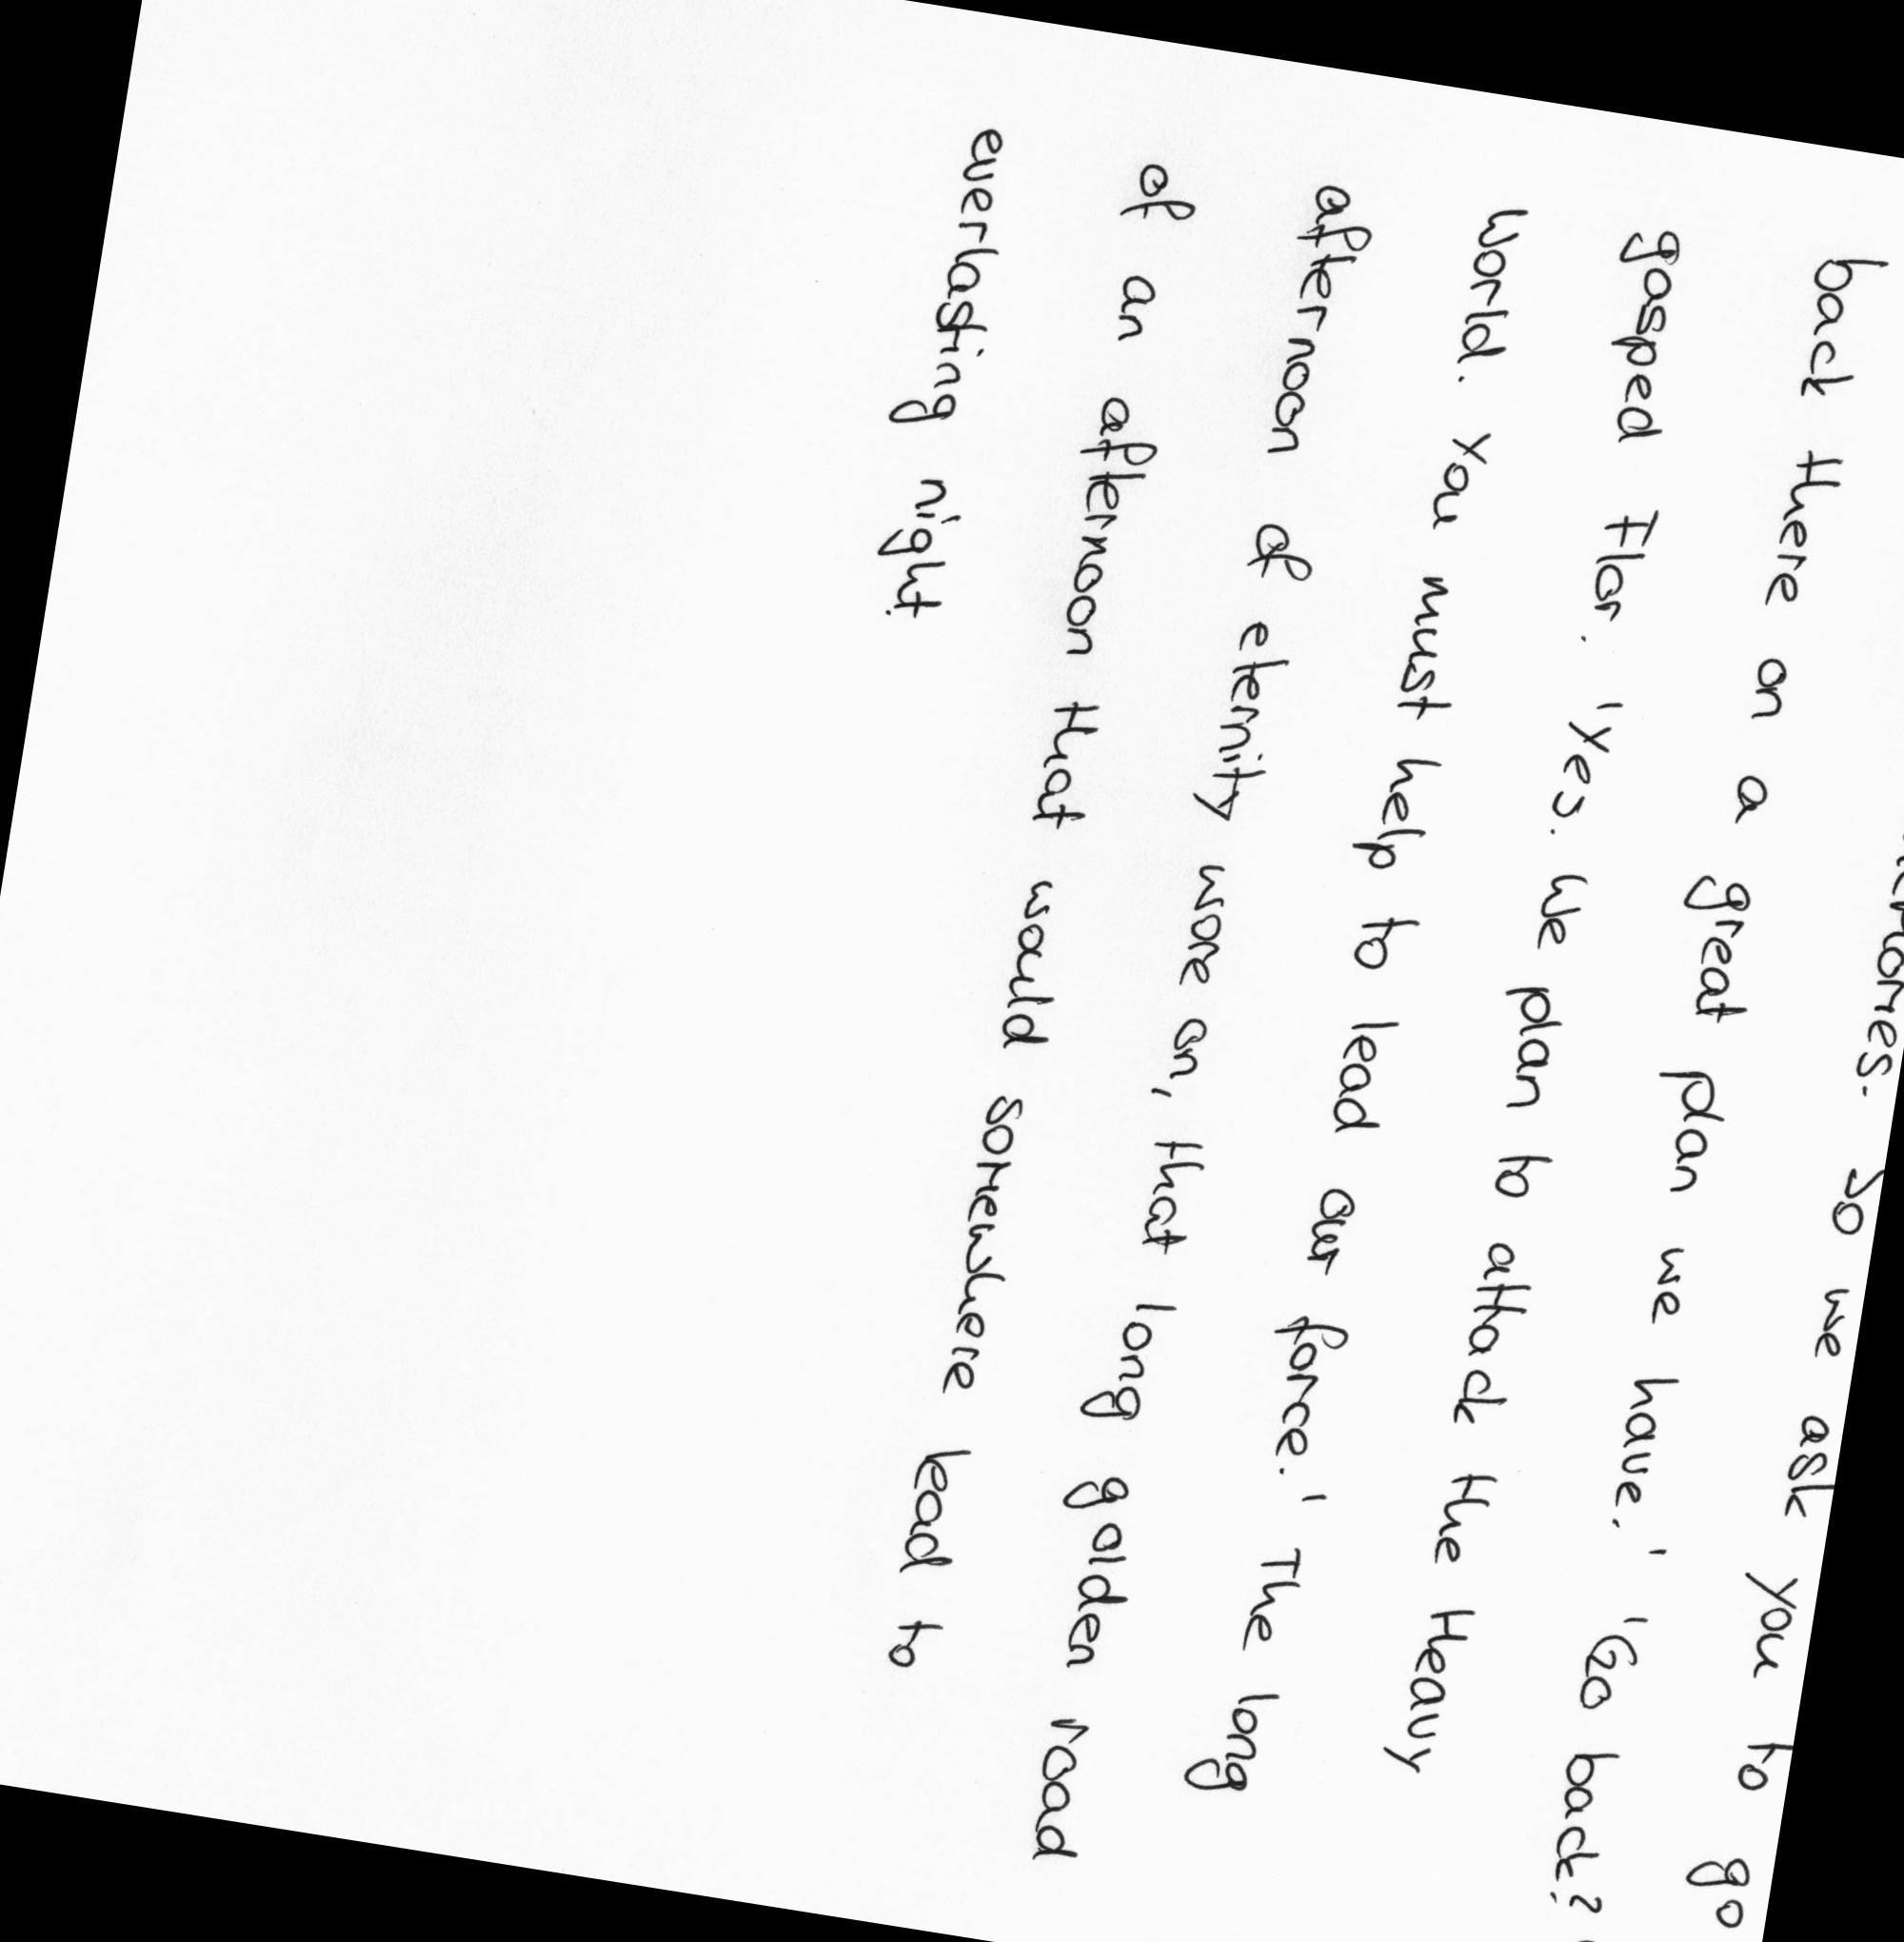 So we ask you to go
back there on a great plan we have.' 'Go back?'
gasped Flor. 'Yes. We plan to attack the Heavy
world. You must help to lead our force.' The long
afternoon of eternity wore on, that long golden road
of an afternoon that would somewhere lead to
everlasting night.